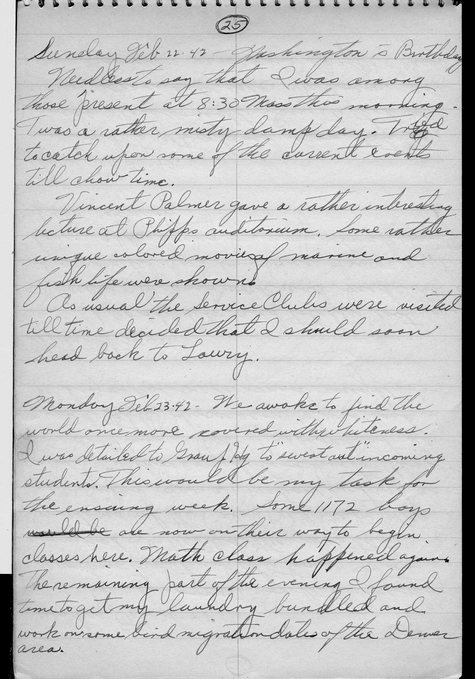 25
Sunday Feb 22-42 - Washington's Birthday
Needless to say that I was among
those present at 8:30 Mass this morning.
Twas a rather misty damp day. Tried
to catch up on some of the current events
till chow time.
Vincent Palmer gave a rather interesting
lecture at Phipps auditorium. Some rather
unique colored movies of marine and
fish life were shown.
As usual the Service Clubs were visited
till time decided that I should soon
head back to Lowry.
Monday Feb 23-42 - We awoke to find the
world once more covered with whiteness.
I was detailed to Group Hq to "sweat out" incoming
students. This would be my task for
the ensuing week. Some 1172 boys
would be are now on their way to begin
classes here. Math class happened again.
The remaining part of the evening I found
time to get my laundry bundled and
work on some bird migration dates of the Denver
area.